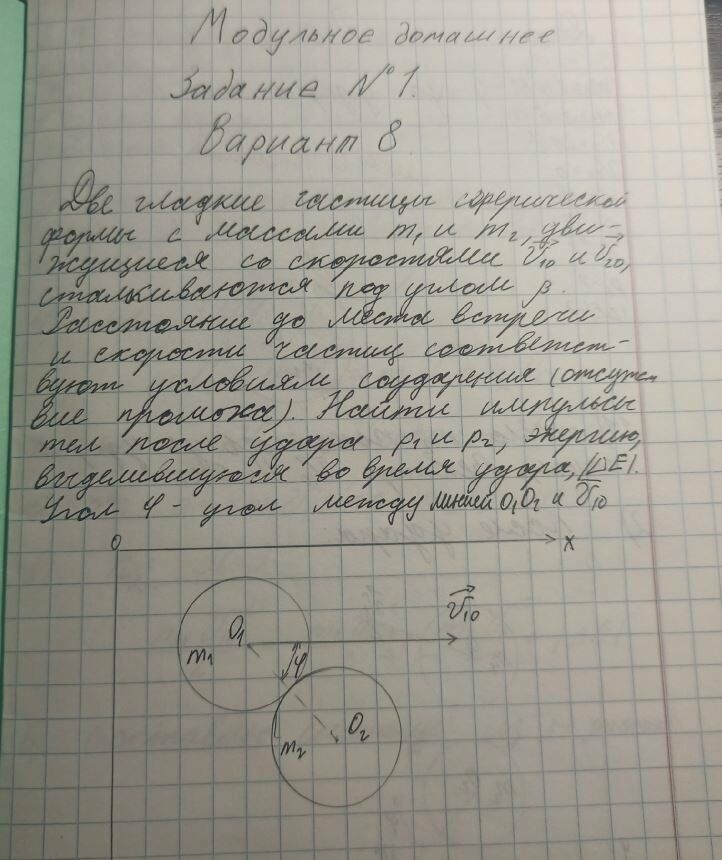 Модульное домашнее
Задание №1.
Вариант 8
Две гладкие частицы сферической
формы с массами m₁ и m₂, дви-
жущиеся со скоростями v₁₀ и v₂₀,
сталкиваются под углом β.
Расстояние до места встречи
и скорости частиц соответст-
вуют условиям соударения (отсутст
вие промаха). Найти импульсы
тел после удара p₁ и p₂, энергию,
выделившуюся во время удара, |ΔE|.
Угол φ - угол между линией O₁O₂ и v₁₀
0 x
v₁₀
O₁
m₁
φ
O₂
m₂